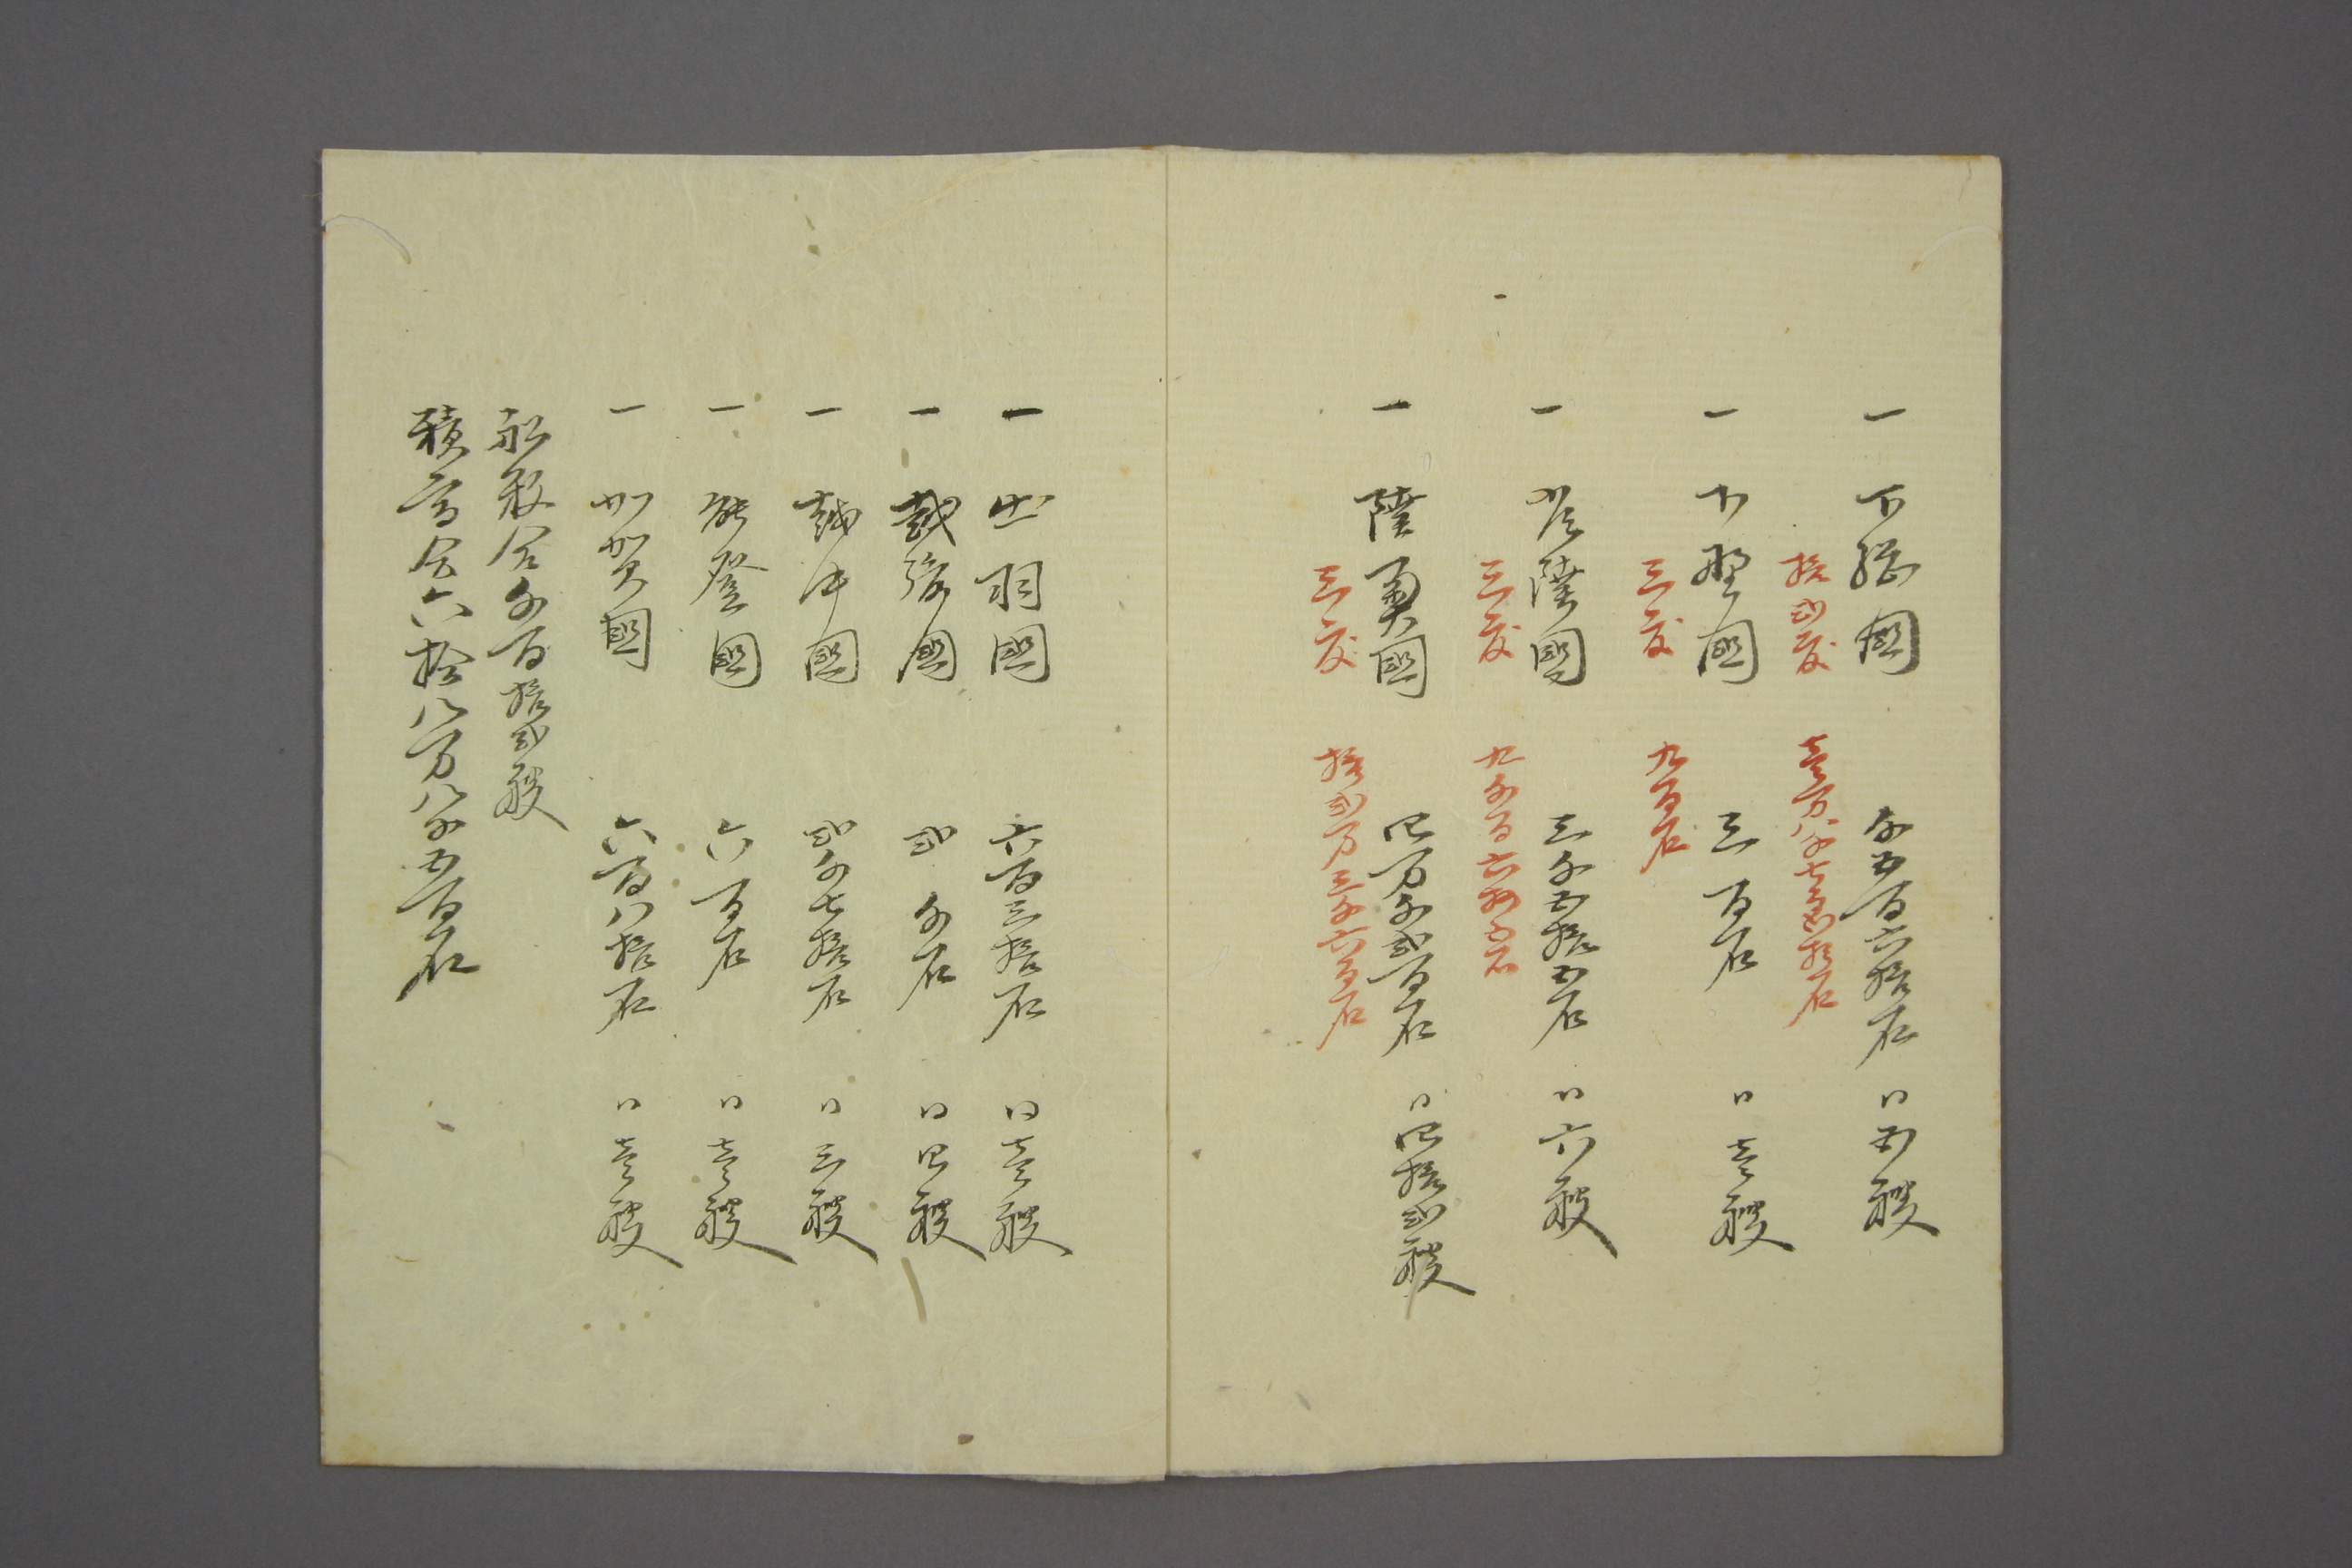 一 下総國 千五百六拾石 〃五艘
拾弐度 壱万八千七百弐拾石
一 下野國 三百石 〃壱艘
三度 九百石
一 常陸國 三千五拾五石 〃六艘
三度 九千百六拾五石
一 陸奥國 四万千弐百石 〃四拾弐艘
三度 拾弐万三千六百石
一 出羽國 六百三拾石 〃壱艘
一 越後國 弐千石 〃四艘
一 越中國 弐千七拾石 〃三艘
一 能登國 六百石 〃壱艘
一 加賀國 六百八拾石 〃壱艘
船数合千百拾弐艘
積高合六拾八万八千五百石